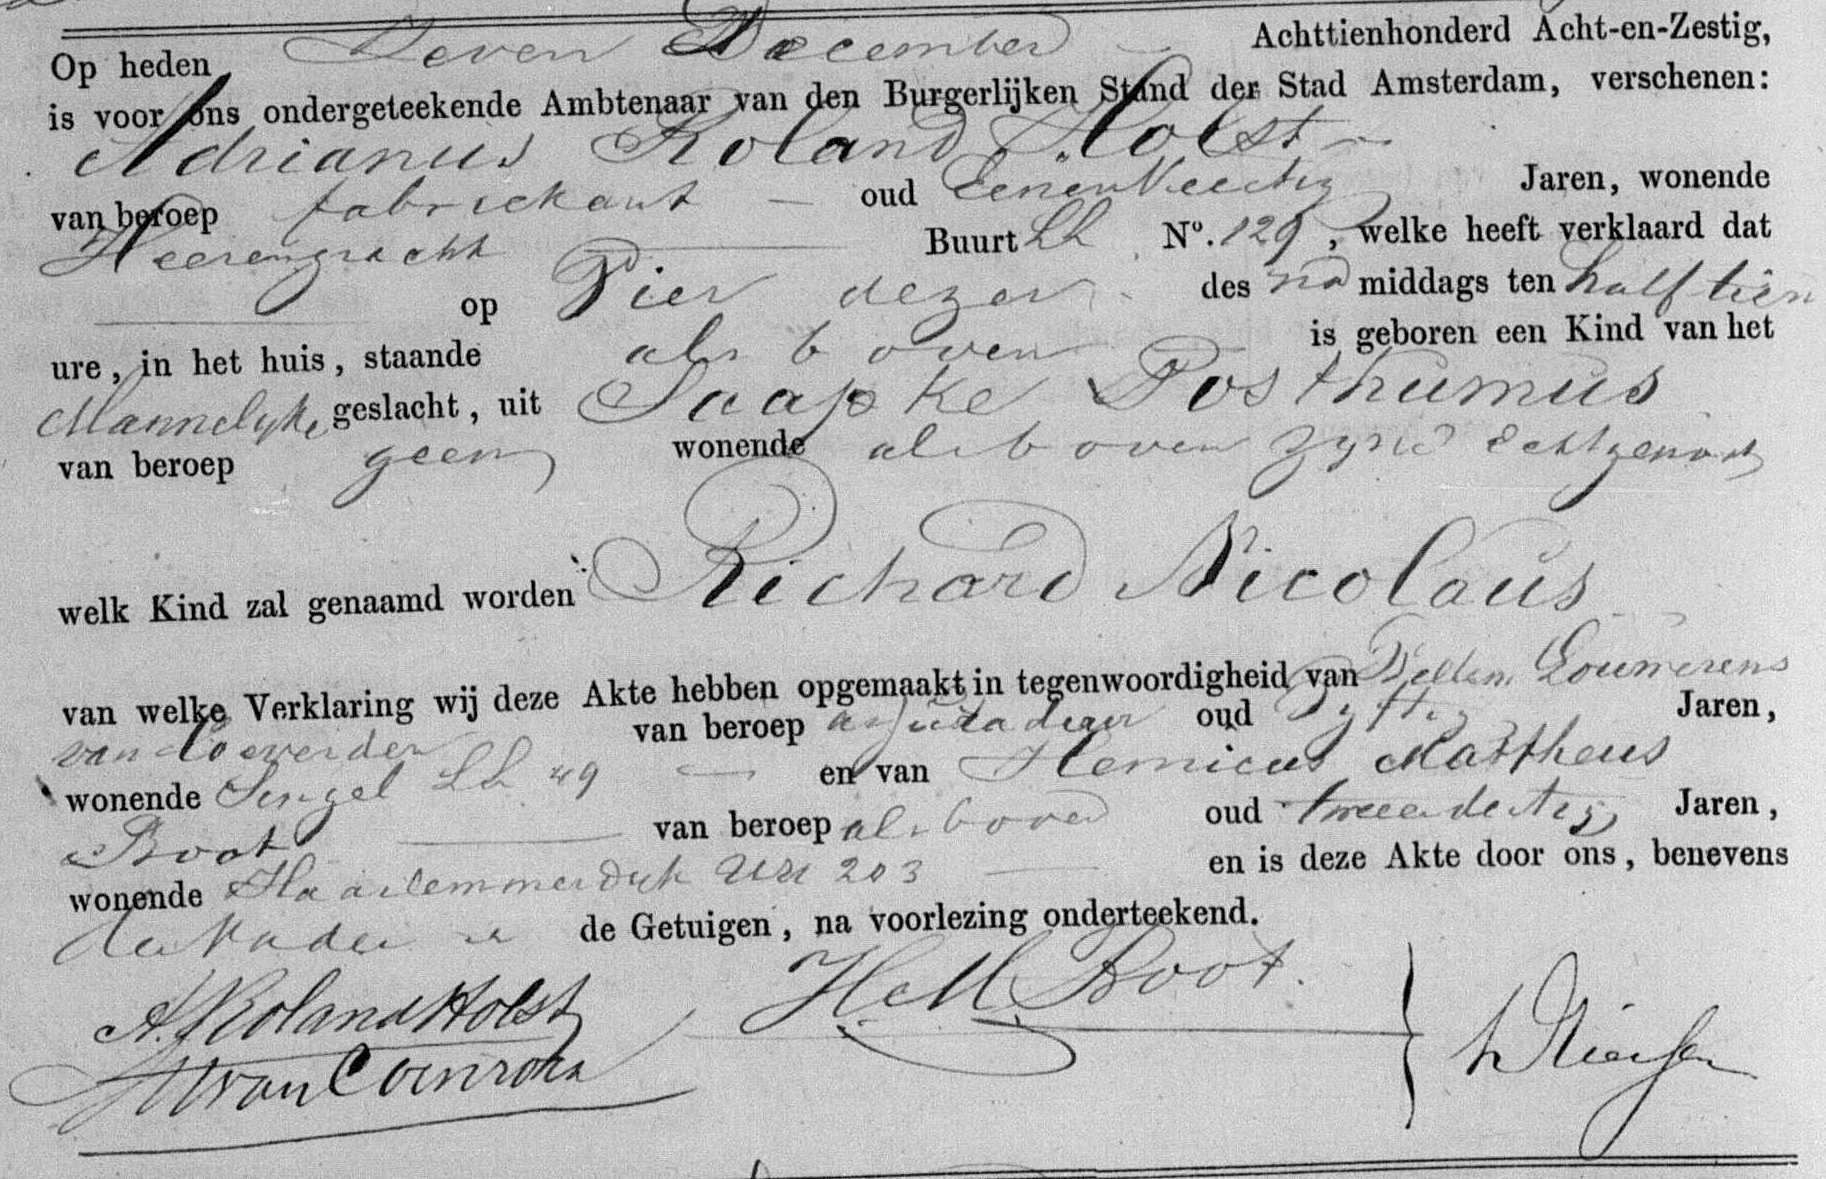 Op heden Zeven December Achttienhonderd Acht-en-Zestig,
is voor ons ondergeteekende Ambtenaar van den Burgerlijken Stand der Stad Amsterdam, verschenen:
Adrianus Roland Holst
van beroep fabriekant oud Eenenveertig Jaren, wonende
Heerengracht Buurt LL No. 129, welke heeft verklaard dat
op Vier dezer des na middags ten half tien
ure, in het huis, staande als boven is geboren een Kind van het
Mannelyke geslacht, uit Saapke Posthumus
van beroep geen wonende als boven zynde Echtgenoot
welk Kind zal genaamd worden Richard Nicolaus
van welke Verklaring wij deze Akte hebben opgemaakt in tegenwoordigheid van Willem Lourerens
van Coeverden van beroep oud Vyftig Jaren,
wonende Singel LL 49 en van Henricus Mattheus
Boot van beroep als boven oud tweeendertig Jaren,
wonende Haarlemmerdyk UU 203 en is deze Akte door ons, benevens
den Vader en de Getuigen, na voorlezing onderteekend.
A. Roland Holst HM Boot.
van Coeverden